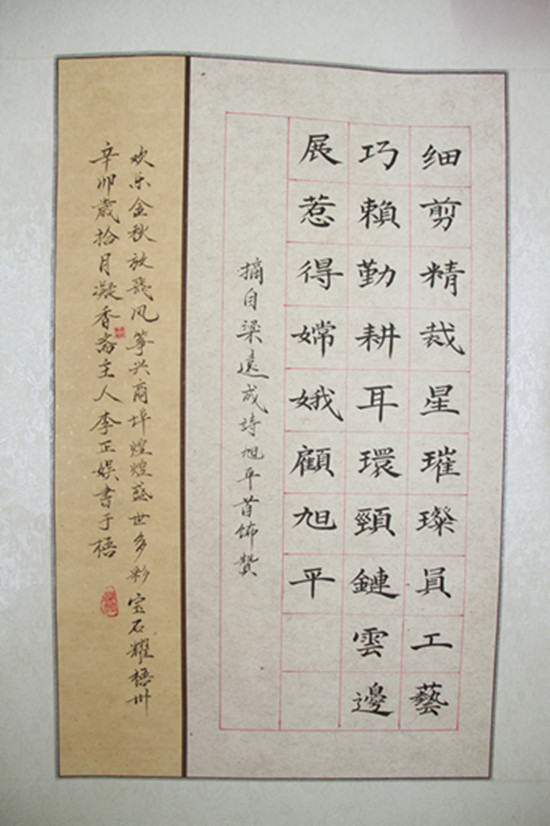 细剪精裁星璀璨員工藝
巧賴勤耕耳環頸鏈雲邊
展惹得嫦娥顧旭平
摘自梁遠成诗旭平首饰赞
欢乐金秋放飛风筝兴商埠煌煌盛世多彩宝石耀梧州
辛卯歲拾月凝香斋主人李正娱書于梧